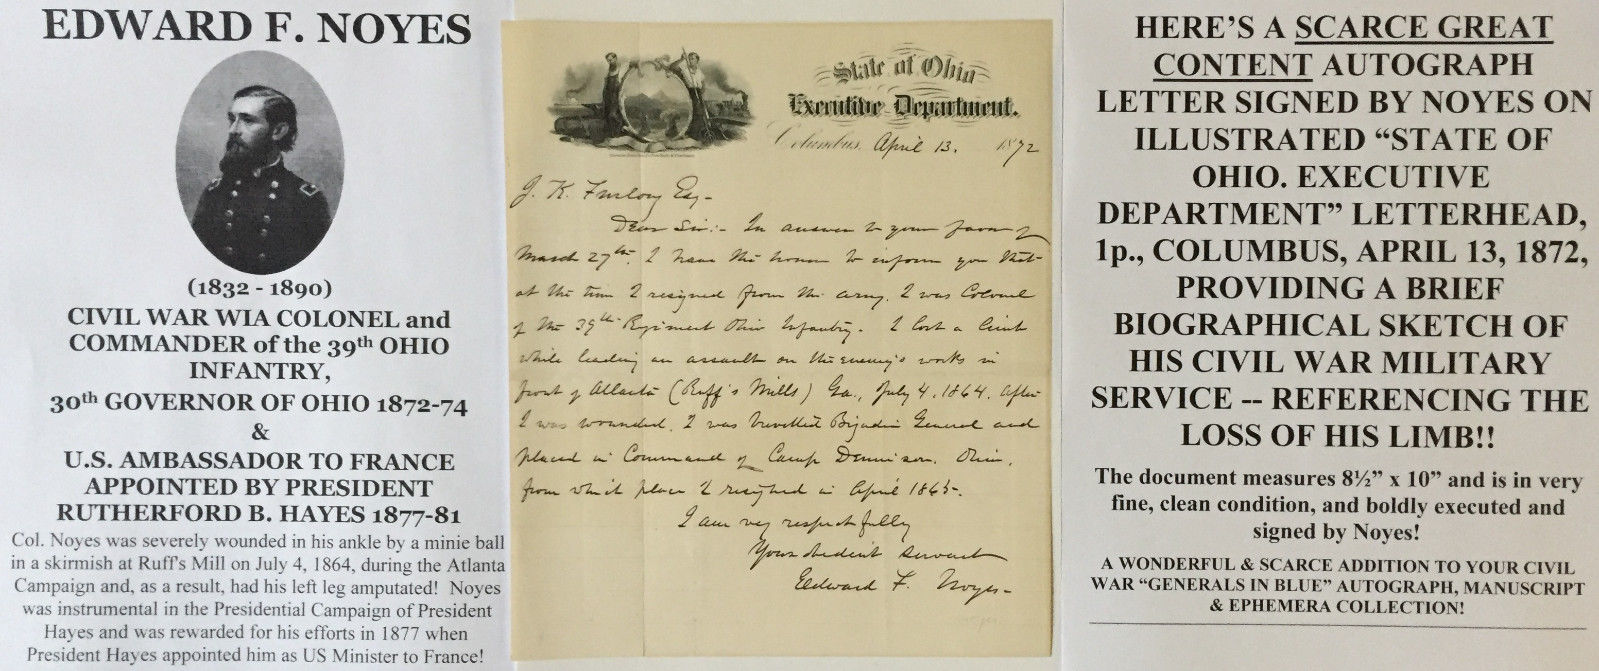 EDWARD F. NOYES
(1832 - 1890)
CIVIL WAR WIA COLONEL and
COMMANDER of the 39th OHIO
INFANTRY,
30th GOVERNOR OF OHIO 1872-74
&
U.S. AMBASSADOR TO FRANCE
APPOINTED BY PRESIDENT
RUTHERFORD B. HAYES 1877-81
Col. Noyes was severely wounded in his ankle by a minie ball
in a skirmish at Ruff's Mill on July 4, 1864, during the Atlanta
Campaign and, as a result, had his left leg amputated! Noyes
was instrumental in the Presidential Campaign of President
Hayes and was rewarded for his efforts in 1877 when
President Hayes appointed him as US Minister to France!
State of Ohio
Executive Department.
Columbus, April 13. 1872
J. K. Furlong Esq-
Dear Sir:- In answer to your favor of
March 27th. I have the honor to inform you that
at the time I resigned from the army, I was Colonel
of the 39th Regiment Ohio Infantry. I lost a limb
while leading an assault on the enemy's works in
front of Atlanta (Ruff's Mills) Ga., July 4, 1864. After
I was wounded, I was brevetted Brigadier General and
placed in Command of Camp Dennison, Ohio,
from which place I resigned in April 1865.
I am very respectfully
Your obedient servant
Edward F. Noyes-
HERE'S A SCARCE GREAT
CONTENT AUTOGRAPH
LETTER SIGNED BY NOYES ON
ILLUSTRATED “STATE OF
OHIO. EXECUTIVE
DEPARTMENT” LETTERHEAD,
1p., COLUMBUS, APRIL 13, 1872,
PROVIDING A BRIEF
BIOGRAPHICAL SKETCH OF
HIS CIVIL WAR MILITARY
SERVICE -- REFERENCING THE
LOSS OF HIS LIMB!!
The document measures 8½” x 10” and is in very
fine, clean condition, and boldly executed and
signed by Noyes!
A WONDERFUL & SCARCE ADDITION TO YOUR CIVIL
WAR “GENERALS IN BLUE” AUTOGRAPH, MANUSCRIPT
& EPHEMERA COLLECTION!